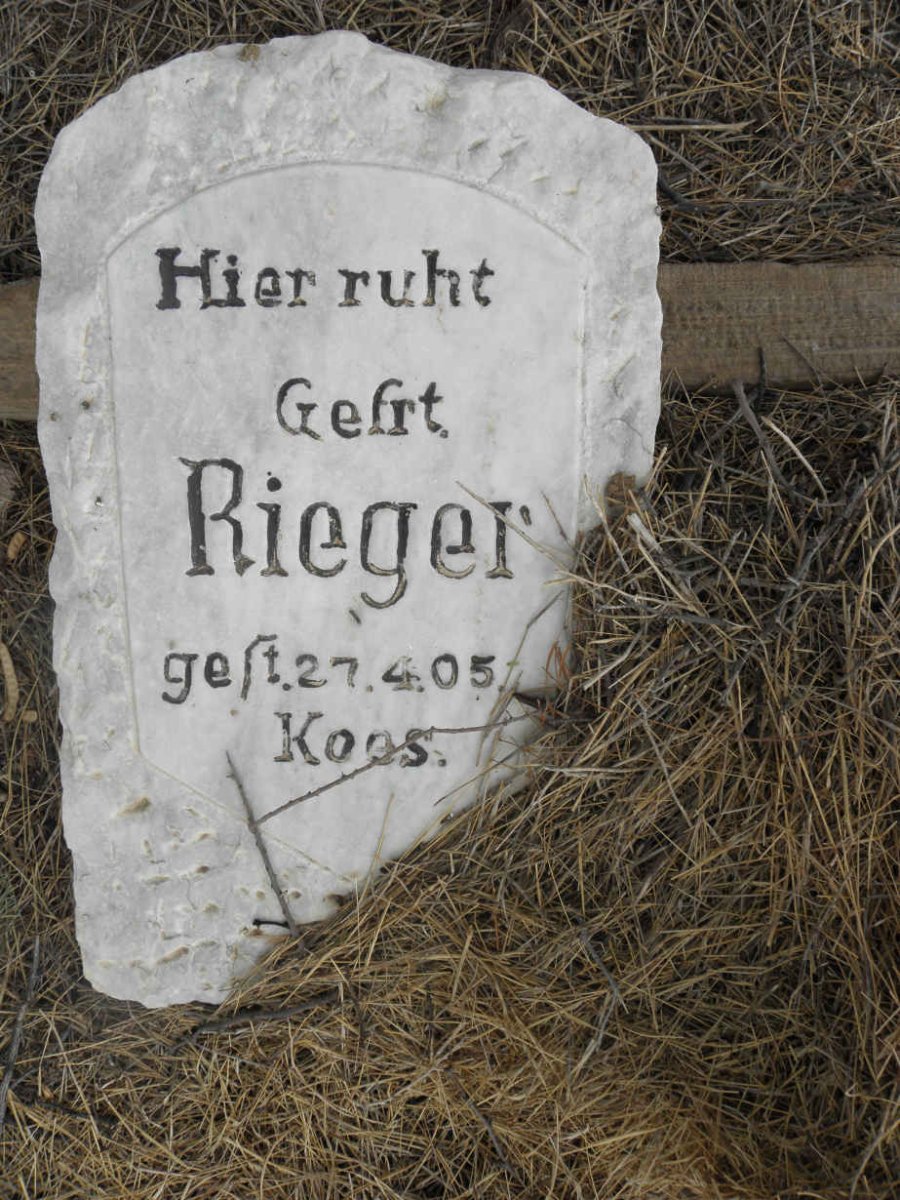 Hier ruht
Gefrt.
Rieger
geſt. 27.4.05.
Koes.